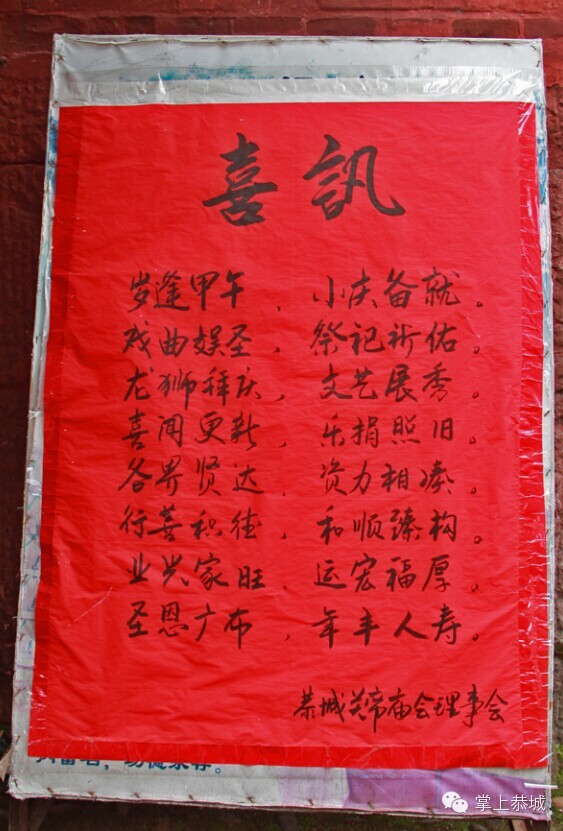 喜訊
岁逢甲午，小庆备就。
戏曲娱圣，祭祀祈佑。
龙狮拜庆，文艺展秀。
喜闻更新，乐捐照旧。
各界贤达，资力相凑。
行善积德，和顺臻构。
业兴家旺，运宏福厚。
圣恩广布，年丰人寿。
恭城关帝庙会理事会
掌上恭城